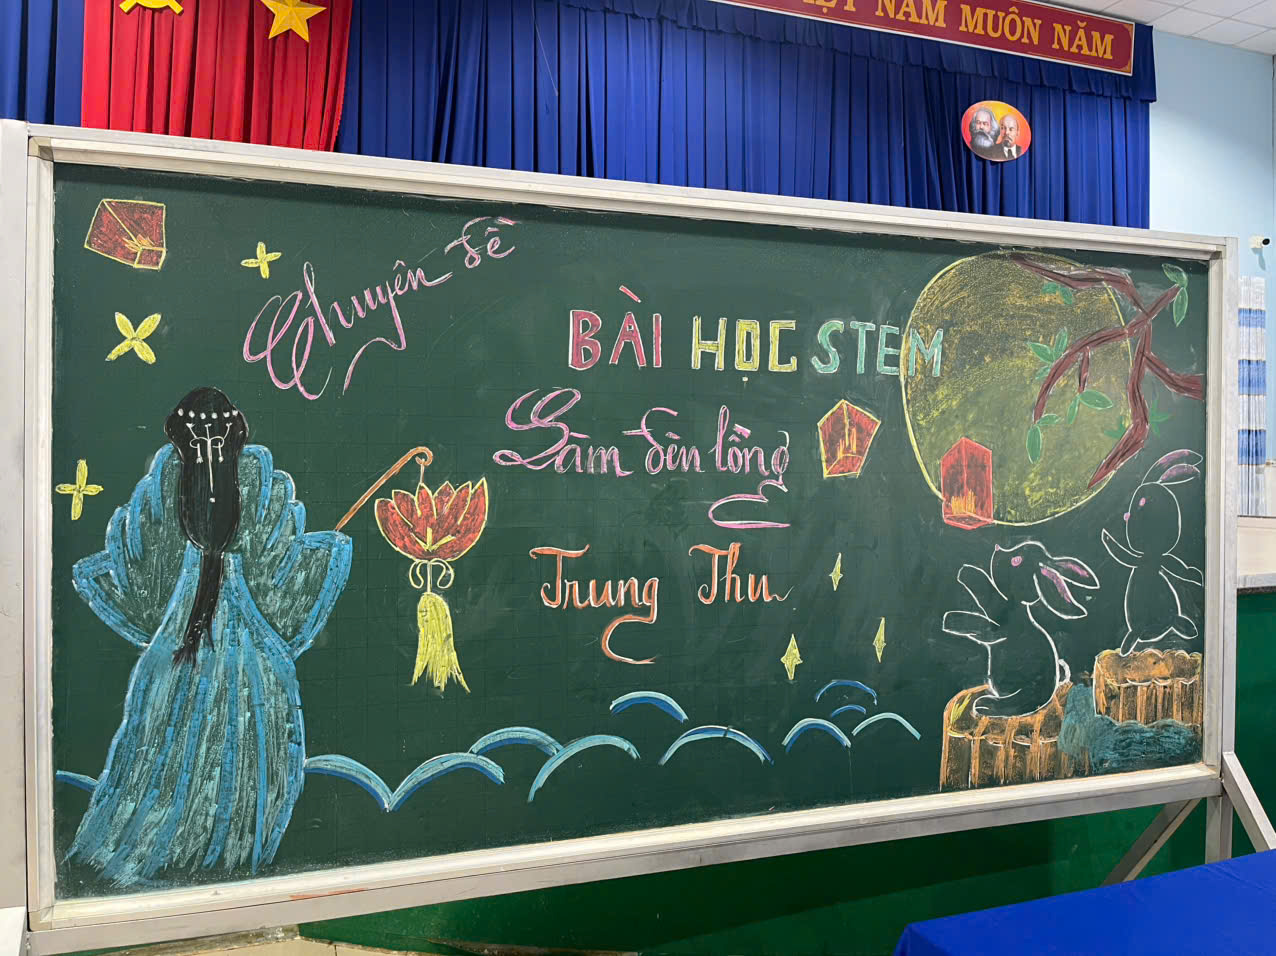 VIỆT NAM MUÔN NĂM
Chuyên đề
BÀI HỌC STEM
Làm đèn lồng
Trung Thu